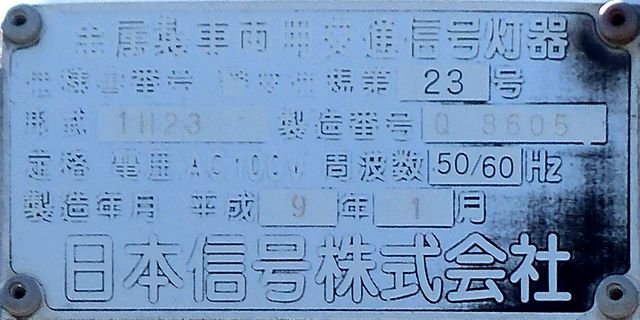 金属製車両用交通信号灯器
警交仕規第 23 号
形式 1H23 製造番号 Q 8605
定格 電圧 AC100V 周波数 50/60 Hz
製造年月 平成 9 年 1 月
日本信号株式会社